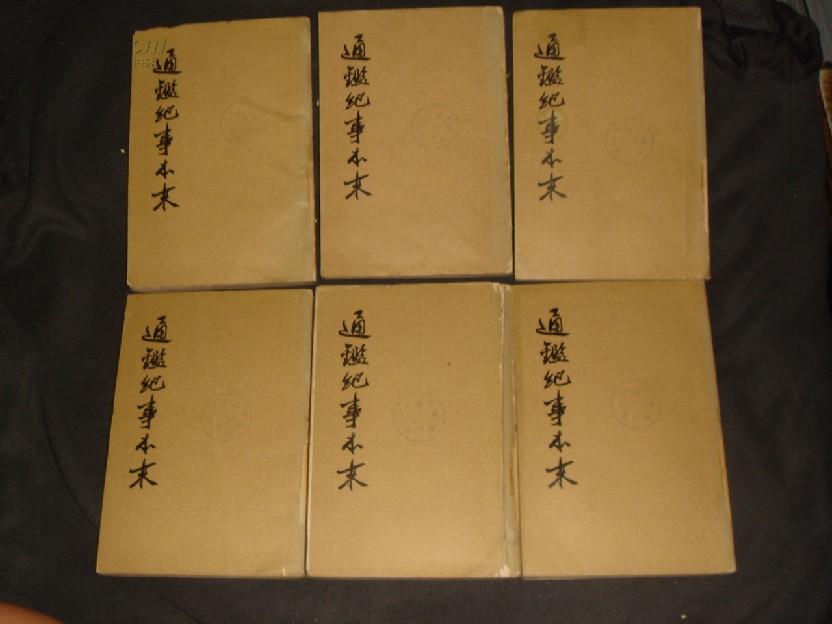 通鑑紀事本末
通鑑紀事本末
通鑑紀事本末
通鑑紀事本末
通鑑紀事本末
通鑑紀事本末